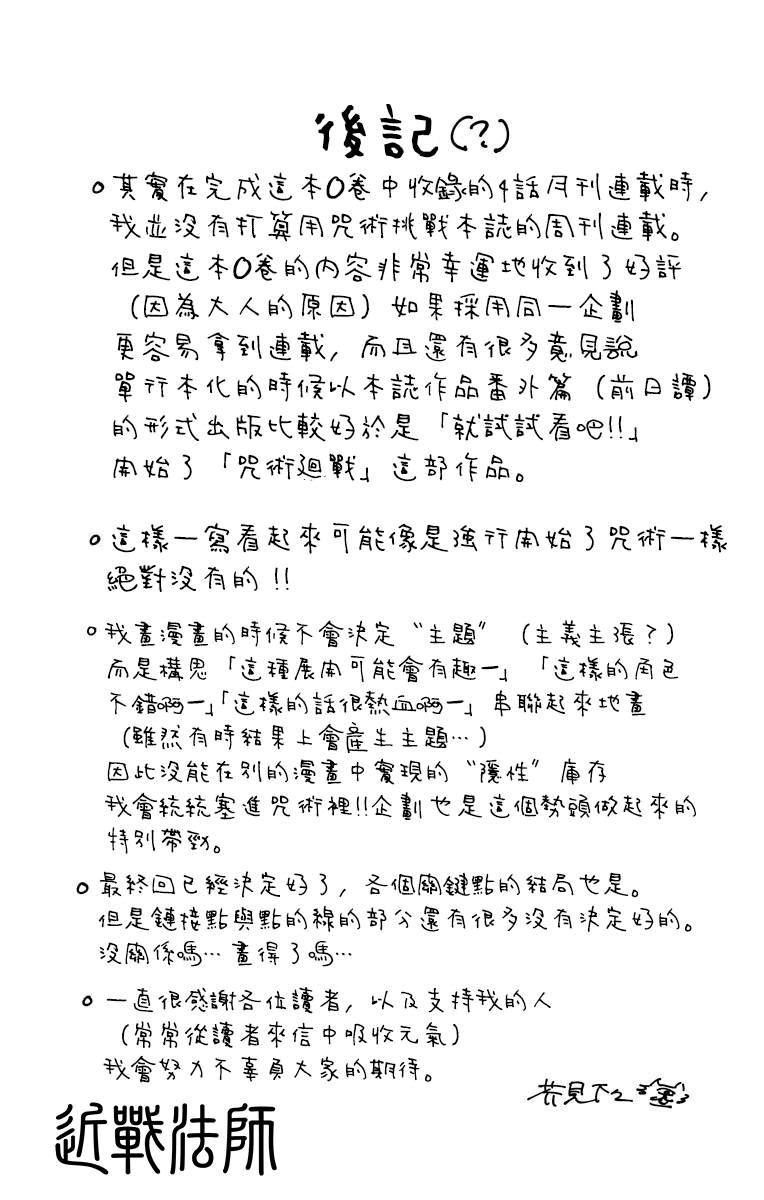 後記(?)
。其實在完成這本0卷中收錄的4話月刊連載時,
我並沒有打算用咒術挑戰本誌的周刊連載。
但是這本0卷的內容非常幸運地收到了好評
(因為大人的原因)如果採用同一企劃
更容易拿到連載, 而且還有很多意見說
單行本化的時候以本誌作品番外篇(前日譚)
的形式出版比較好於是「就試試看吧!!」
開始了「咒術廻戰」這部作品。
。這樣一寫看起來可能像是強行開始了咒術一樣
絕對沒有的!!
。我畫漫畫的時候不會決定“主題”(主義主張?)
而是構思「這種展開可能會有趣ー」「這樣的角色
不錯啊ー」「這樣的話很熱血啊ー」串聯起來地畫
(雖然有時結果上會產生主題…)
因此沒能在別的漫畫中實現的“隱性”庫存
我會統統塞進咒術裡!!企劃也是這個勢頭做起來的
特別帶勁。
。最終回已經決定好了, 各個關鍵點的結局也是。
但是鏈接點與點的線的部分還有很多沒有決定好的。
沒關係嗎… 畫得了嗎…
。一直很感謝各位讀者, 以及支持我的人
(常常從讀者來信中吸收元氣)
我會努力不辜負大家的期待。
芥見下々
近戰法師